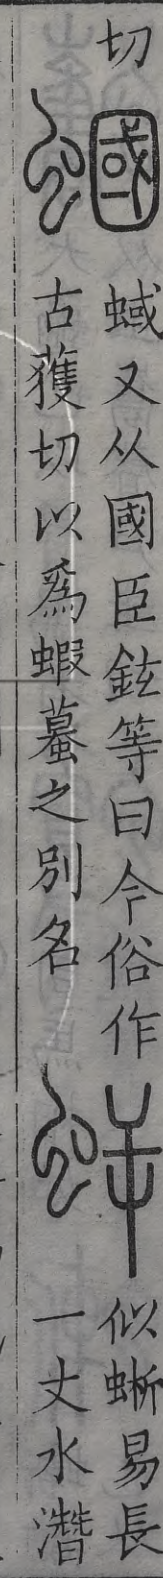 切
蟈
蜮又从國臣鉉等曰今俗作
古獲切以爲蝦蟇之別名
似蜥易長
一丈水潛